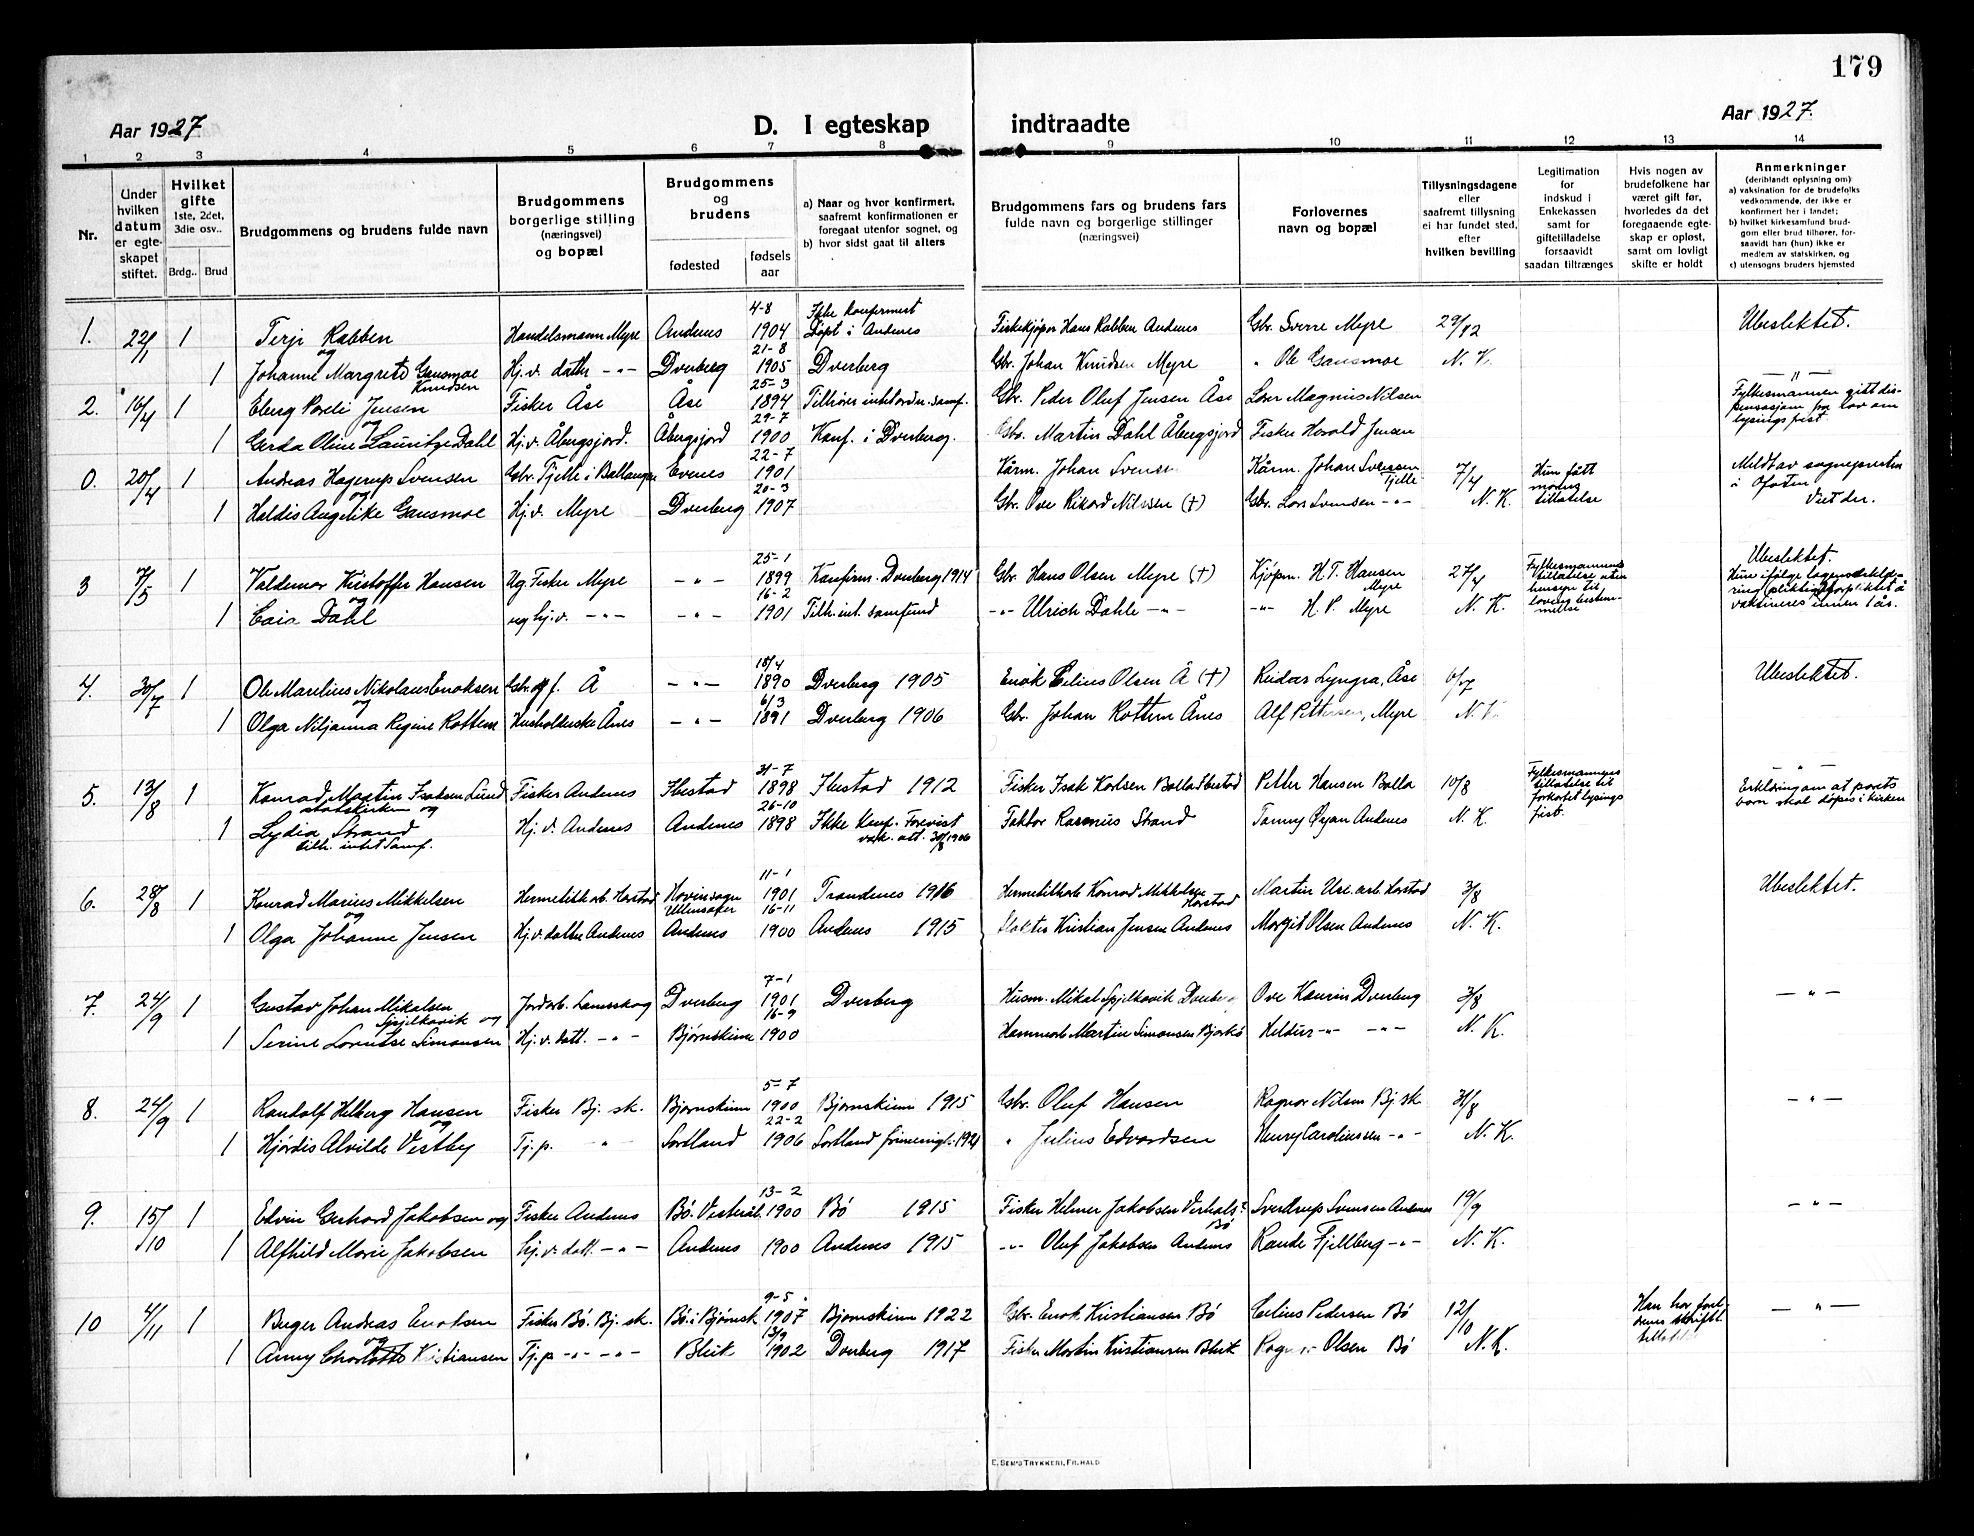 179
Aar 1927
D. I egteskap indtraadte
Aar 1927.
1 2 3 4 5 6 7 8 9 10 11 12 13 14
Nr.
Under hvilken datum er egteskapet stiftet.
Hvilket gifte 1ste, 2det, 3die osv..
Brdg.. Brud
Brudgommens og brudens fulde navn
Brudgommens borgerlige stilling (næringsvei) og bopæl
Brudgommens og brudens
fødested
fødsels aar
a) Naar og hvor konfirmert, saafremt konfirmationen er foregaat utenfor sognet, og
b) hvor sidst gaat til alters
Brudgommens fars og brudens fars fulde navn og borgerlige stillinger (næringsvei)
Forlovernes navn og bopæl
Tillysningsdagene eller saafremt tillysning ei har fundet sted, efter hvilken bevilling
Legitimation for indskud i Enkekassen samt for giftetilladelse forsaavidt saadan tiltrænges
Hvis nogen av brudefolkene har været gift før, hvorledes da det foregaaende egteskap er opløst, samt om lovligt skifte er holdt
Anmerkninger (deriblandt oplysning om)
a) vaksination for de brudefolks vedkommende, der ikke er konfirmert her i landet;
b) hvilket kirkesamfund brudgom eller brud tilhører, forsaavidt han (hun) ikke er medlem av statskirken, og
c) utensogns bruders hjemsted
1. 22/1 1 Terje Rabben Handelsmann Myre Andenes 4-8 1904 Ikke konfirmert Døpt i Andenes Fiskekjøper Hans Rabben Andenes Gbr. Sverre Myre 29/12 Ubeslektet.
og
1 Johanne Margrete Gausmoe Knudsen Hj.v. datter -"- Dverberg 21-8 1905 Dverberg Gbr. Johan Knudsen Myre " Ole Gausmoe N. K.
2. 16/4 1 Eberg Pareli Jensen Fisker Åse Åse 25-3 1894 Tilhører intet ordn. samf. Gbr. Peder Oluf Jensen Åse Lars Magnus Nilsen -"- Fylkesmannen gitt dispensasjon fra lov om lysingsfrist.
og
1 Gerda Oline Lauritze Dahl Hj.v. Åbergsjord. Åbergsjord 29-7 1900 Konf. i Dverberg. Gbr. Martin Dahl Åbergsjord Fisker Harald Jensen
0. 20/4 1 Andreas Hagerup Svensen Gbr. Tjelle i Ballangen Evenes 22-7 1901 Kårm. Johan Svensen Kårm. Johan Svensen Tjelle 7/4 Hun fått morens tillatelse Meldt av sognepresten i Ofoten Viet der.
og
1 Haldis Angelike Gausmoe Hj.v. Myre Dverberg 20-3 1907 Gbr. Ove Rikard Nilssen (†) Gbr. Lars Svensen -"- N. K.
3 7/5 1 Valdemar Kristoffer Hansen Ug. Fisker Myre -"- 25-1 1899 Konfirm. Dverberg 1914 Gbr. Hans Olsen Myre (†) Kjøpm. H. T. Hansen Myre 27/4 Fylkesmannens tillatelse uten hensyn til lovens bestemmelse Ubeslektet. Hun ifølge lægeerklæring forpliktet å vaksineres innen 1 år.
og
1 Caia Dahl ug hj.v. -"- -"- 16-2 1901 Tilh. int. samfund -"- Ulrich Dahle -"- -"- H. P. Myre N. K.
4. 30/7 1 Ole Marelius Nikolaus Enoksen Gbr. og f. Å -"- 18/4 1890 Dverberg 1905 Enok Celius Olsen Å (†) Reidar Lyngra, Åse 6/7 Ubeslektet.
og
1 Olga Niljanna Regine Rottem Husholderske Ånes -"- 6/3 1891 Dverberg 1906 Gbr. Johan Rottem Ånes Alf Pettersen, Myre N. K.
5. 13/8 1 Konrad Martin Isaksen Lund Fisker Andenes Ibestad 31-7 1898 Ibestad 1912 Fisker Isak Karlsen Bolla Ibestad Petter Hansen Bolla 10/8 Fylkesmannens tillatelse til forkortet lysingsfrist. -"- Erklæring om at parets barn skal døpes i kirken
statskirken og
1 Lydia Strand Hj. v. Andenes Andenes 26-10 1898 Ikke Konf. Forevist vak. att. 30/8 1906 Faktor Rasmus Strand Tommy Øyan Andenes N. K.
tilh. intet samf.
6. 28/8 1 Konrad Marius Mikkelsen Hermetikkarb. Harstad Hovinsogn Ullensaker 11-1 1901 Trondenes 1916 Hermetikkarb Konrad Mikkelsen Harstad Martin Use arb Harstad 3/8 Ubeslektet.
og
1 Olga Johanne Jensen Hj.v. datter Andenes Andenes 16-11 1900 Andenes 1915 Kristian Jensen Andenes Margit Olsen Andenes N. K.
7. 24/9 1 Gustav Johan Mikalsen Spjilkavik og Jordarb. Lamsskog Dverberg 7-1 1901 Dverberg Husm. Mikal Spjilkavik Dverberg Ove Kanrin Dverberg 3/8 -"-
1 Serine Lorntse Simonsen Hj.v. datt. -"- Bjørnskinn 16-9 1900 Martin Simonsen Bjarkø Heldur -"- -"- N. K.
8. 24/9 1 Randolf Hilberg Hansen Fisker Bj. sk. Bjørnskinn 5-7 1900 Bjørnskinn 1915 Gbr. Oluf Hansen Ragnar Nilsen Bj. sk 31/8 -"-
og
1 Hjørdis Alvilde Vestby Tj. p. " Sortland 22-2 1906 Sortland frimenigh. 1921 " Julius Edvardsen Henry Caroliussen -"- N. K.
9. 15/10 1 Edvin Gerhard Jakobsen og Fisker Andenes Bø. Vesterål. 13-2 1900 Bø 1915 Fisker Helmer Jakobsen Bø Sverdrup Svensen Andenes 19/9 -"-
1 Alfhild Marie Jakobsen Hj.v. datt. -"- Andenes 1900 Andenes 1915 -"- Oluf Jakobsen Andenes Rande Fjellberg -"- N. K.
10 4/11 1 Birger Andreas Enoksen Fisker Bø. Bj. sk. Bø. i Bjørnsk 9-5 1907 Bjørnskinn 1922 Gbr. Enok Kristiansen Bø Celius Pedersen Bø 12/10 Han har foreldrenes skriftl. tillatelse -"-
og
1 Anny Charlotte Kristiansen Tj. p -"- -"- Bleik 13/9 1902 Dverberg 1917 Fisker Martin Kristiansen Bleik Ragnar Olsen Bø N. K.
E. SEM'S TRYKKERI, FR.HALD